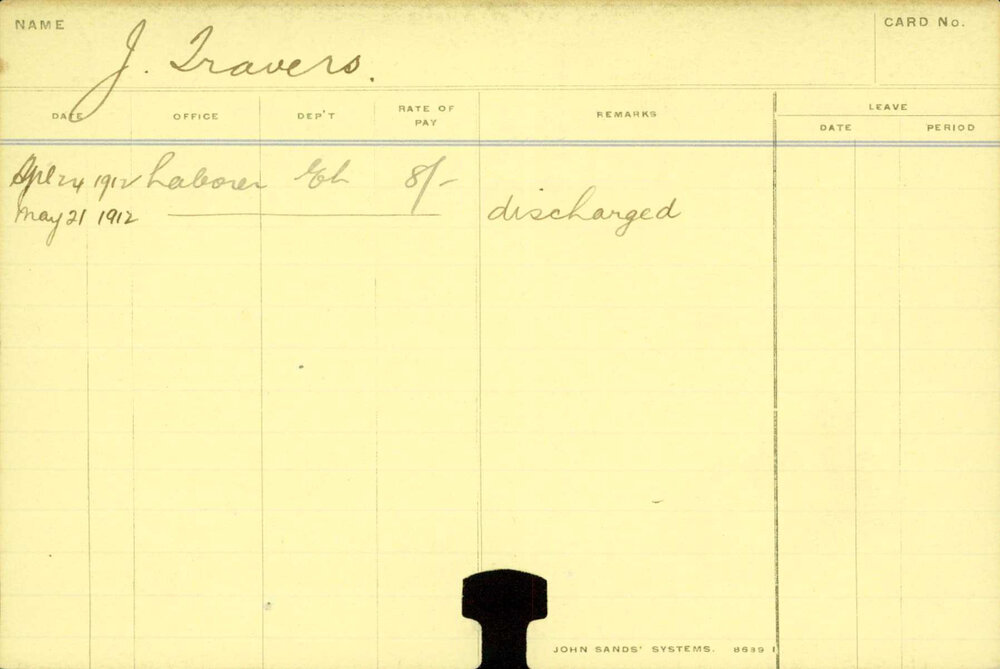 NAME J. Travers. CARD No.
DATE OFFICE DEP'T RATE OF PAY REMARKS LEAVE
DATE PERIOD
Apl 24 1912 Laborer 8/-
May 21 1912 discharged
JOHN SANDS' SYSTEMS. 8689